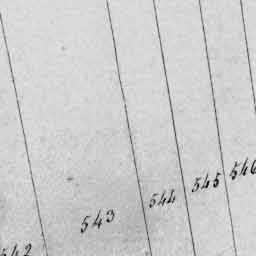 542
543
544
545
546